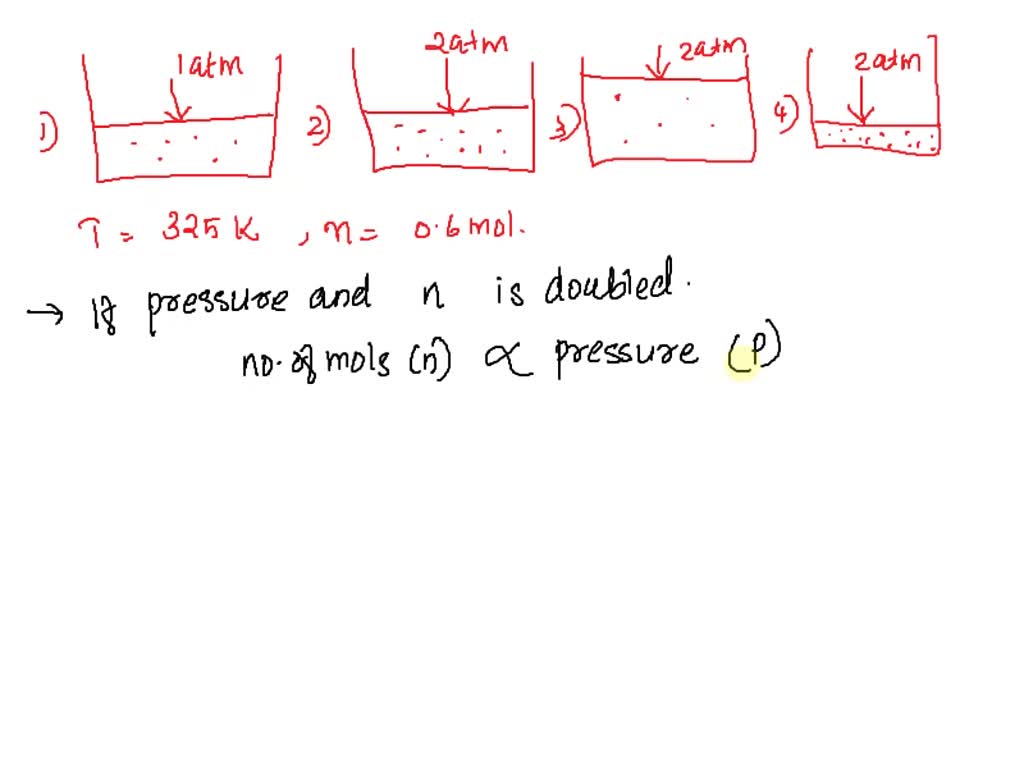 1) 1atm 2) 2atm 3) 2atm 4) 2atm
T = 325 K , n = 0.6 mol.
→ If pressure and n is doubled.
no. of mols (n) ∝ pressure (P)